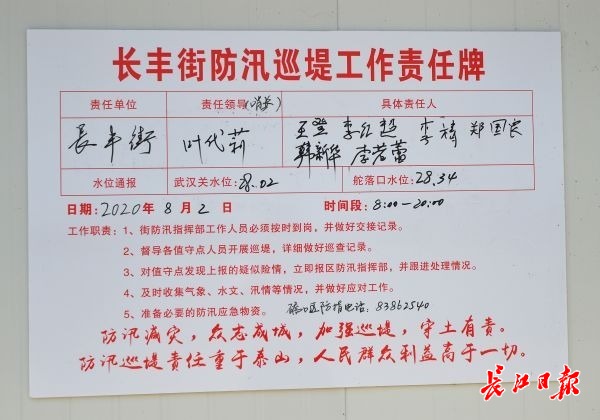 长丰街防汛巡堤工作责任牌
责任单位 责任领导(哨长) 具体责任人
長丰街 叶代莉 王登 李红超 李靖 郑国良
韩新华 李若蕾
水位通报 武汉关水位:28.02 舵落口水位:28.34
日期:2020年8月2日 时间段:8:00—20:00
工作职责:1、街防汛指挥部工作人员必须按时到岗,并做好交接记录。
2、督导各值守点人员开展巡堤,详细做好巡查记录。
3、对值守点发现上报的疑似险情,立即报区防汛指挥部,并跟进处理情况。
4、及时收集气象、水文、汛情等情况,并做好应对工作。
5、准备必要的防汛应急物资。 硚口区防指电话:83862540
防汛减灾,众志成城,加强巡堤,守土有责。
防汛巡堤责任重于泰山,人民群众利益高于一切。
长江日报